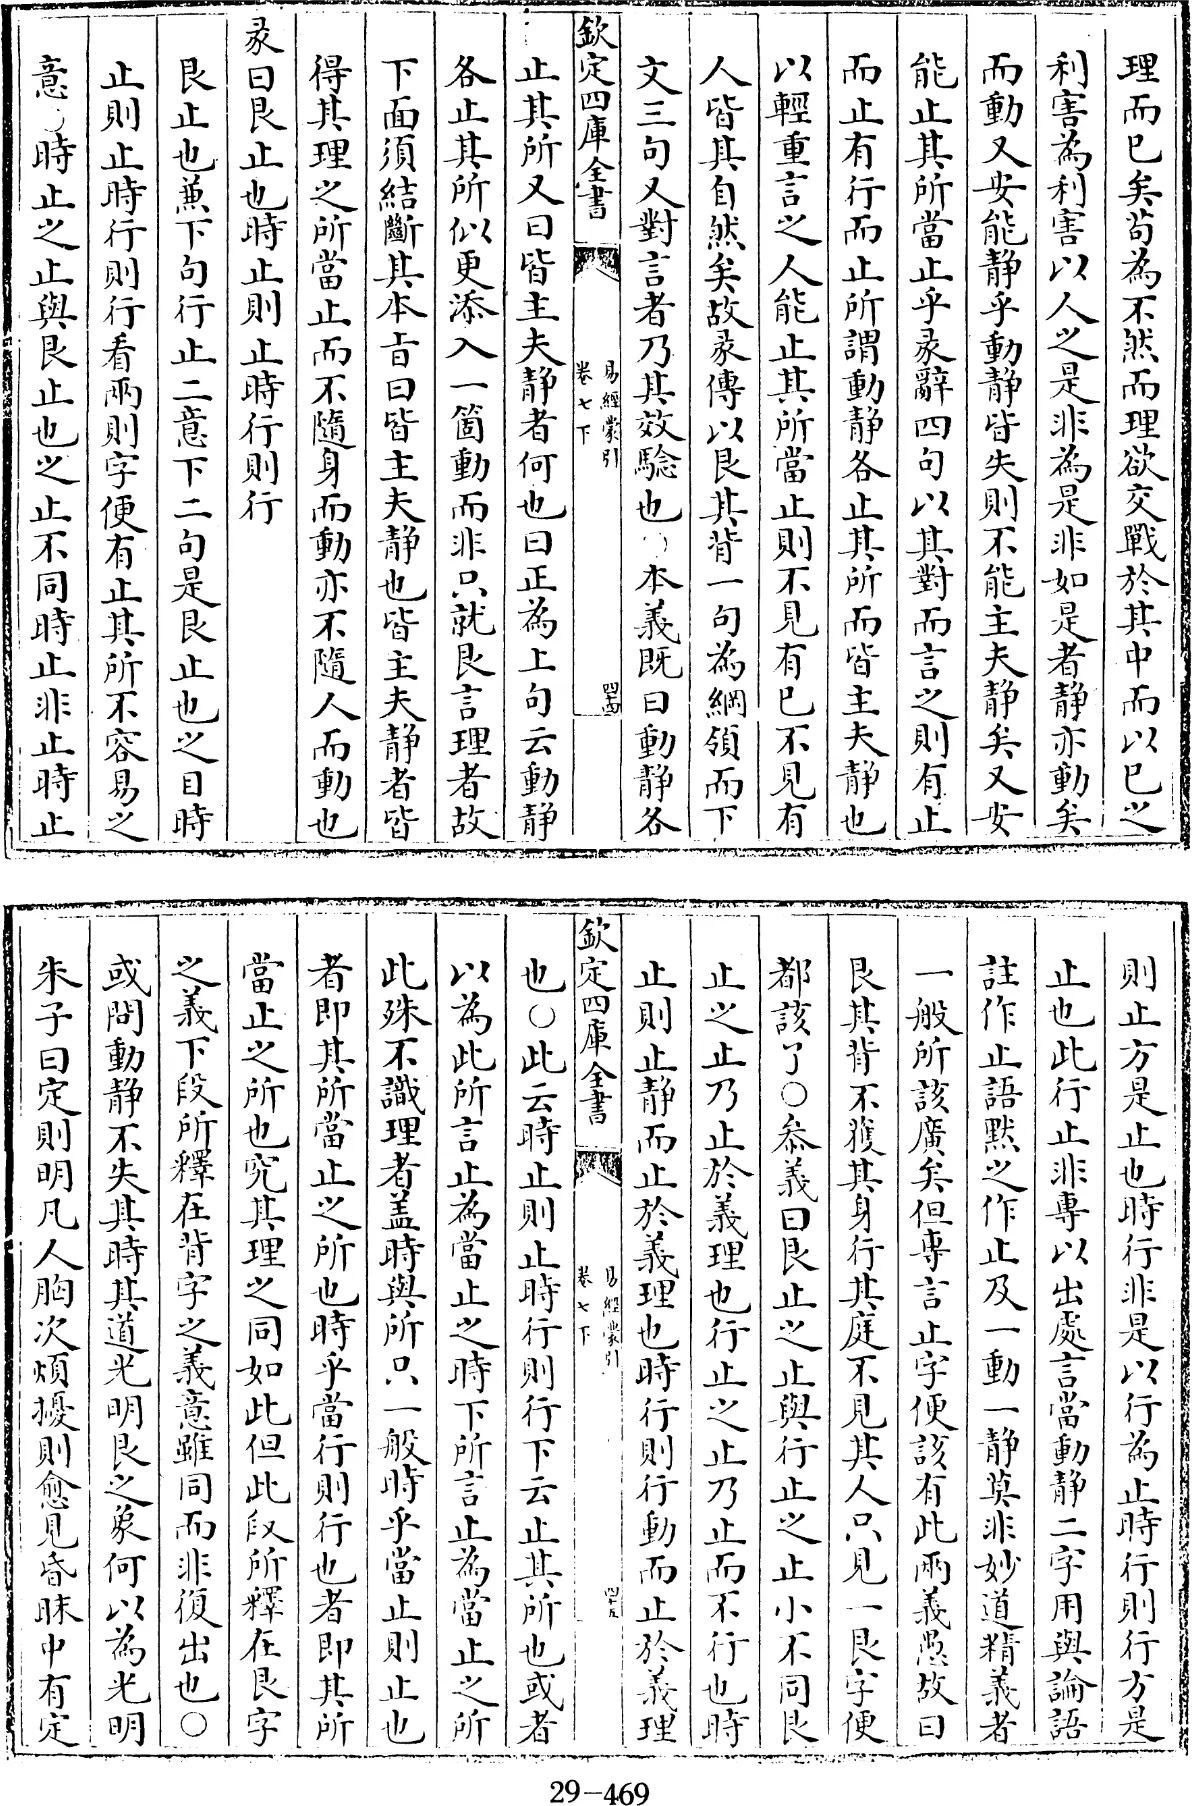 理而已矣苟為不然而理欲交戰於其中而以已之
利害為利害以人之是非為是非如是者静亦動矣
而動又安能静乎動静皆失則不能主夫静矣又安
能止其所當止乎彖辭四句以其對而言之則有止
而止有行而止所謂動静各止其所而皆主夫静也
以輕重言之人能止其所當止則不見有已不見有
人皆其自然矣故彖傳以艮其背一句為綱領而下
文三句又對言者乃其效驗也○本義既曰動静各
欽定四庫全書
易經蒙引
卷七下
四十四
止其所又曰皆主夫静者何也曰正為上句云動静
各止其所似更添入一箇動而非只就艮言理者故
下面須結斷其本旨曰皆主夫静也皆主夫静者皆
得其理之所當止而不隨身而動亦不隨人而動也
彖曰艮止也時止則止時行則行
艮止也兼下句行止二意下二句是艮止也之目時
止則止時行則行看兩則字便有止其所不容易之
意○時止之止與艮止也之止不同時止非止時止
則止方是止也時行非是以行為止時行則行方是
止也此行止非專以出處言當動静二字用與論語
註作止語黙之作止及一動一静莫非妙道精義者
一般所該廣矣但專言止字便該有此兩義愚故曰
艮其背不獲其身行其庭不見其人只見一艮字便
都該了○叅義曰艮止之止與行止之止小不同艮
止之止乃止於義理也行止之止乃止而不行也時
止則止静而止於義理也時行則行動而止於義理
欽定四庫全書
易經蒙引
卷七下
四十五
也○此云時止則止時行則行下云止其所也或者
以為此所言止為當止之時下所言止為當止之所
此殊不識理者盖時與所只一般時乎當止則止也
者即其所當止之所也時乎當行則行也者即其所
當止之所也究其理之同如此但此段所釋在艮字
之義下段所釋在背字之義意雖同而非復出也○
或問動静不失其時其道光明艮之象何以為光明
朱子曰定則明凡人胸次煩擾則愈見昏昧中有定
29-469